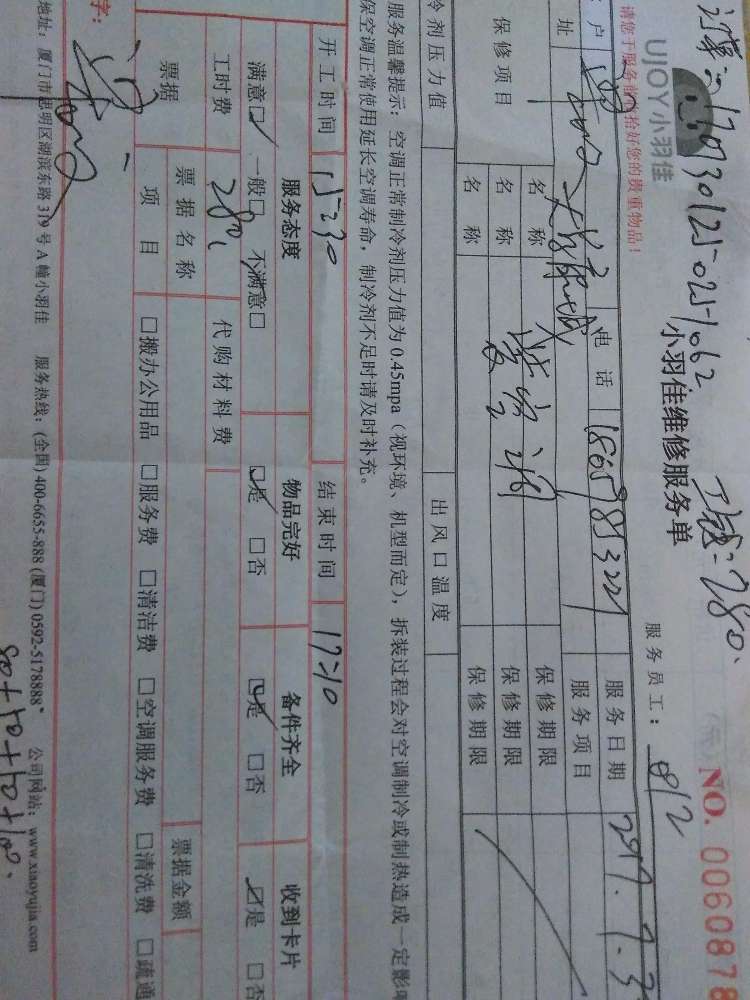 170730125-0251062
工钱:280.
请您于服务前收拾好您的贵重物品!
UJOY小羽佳
小羽佳维修服务单
NO. 0060878
服务员工: 812
户
电话 18659853221
服务日期 2017.7.3
址
服务项目
保修项目 名称 保修期限
名称 保修期限
名称 保修期限
冷剂压力值 出风口温度
服务温馨提示:空调正常制冷剂压力值为0.45mpa(视环境、机型而定),拆装过程会对空调制冷或制热造成一定影响
保空调正常使用延长空调寿命,制冷剂不足时请及时补充。
开工时间 15:30 结束时间 17:10
服务态度 物品完好 备件齐全 收到卡片
满意☑ 一般□ 不满意□ ☑是 □否 ☑是 □否 ☑是 □否
工时费 280 代购材料费
票据 票据名称 票据金额
项目 □搬办公用品 □服务费 □清洁费 □空调服务费 □清洗费 □疏通
字:
地址:厦门市思明区湖滨东路319号A幢小羽佳 服务热线:(全国)400-6655-888 (厦门)0592-5178888 公司网站:www.xiaoyujia.com